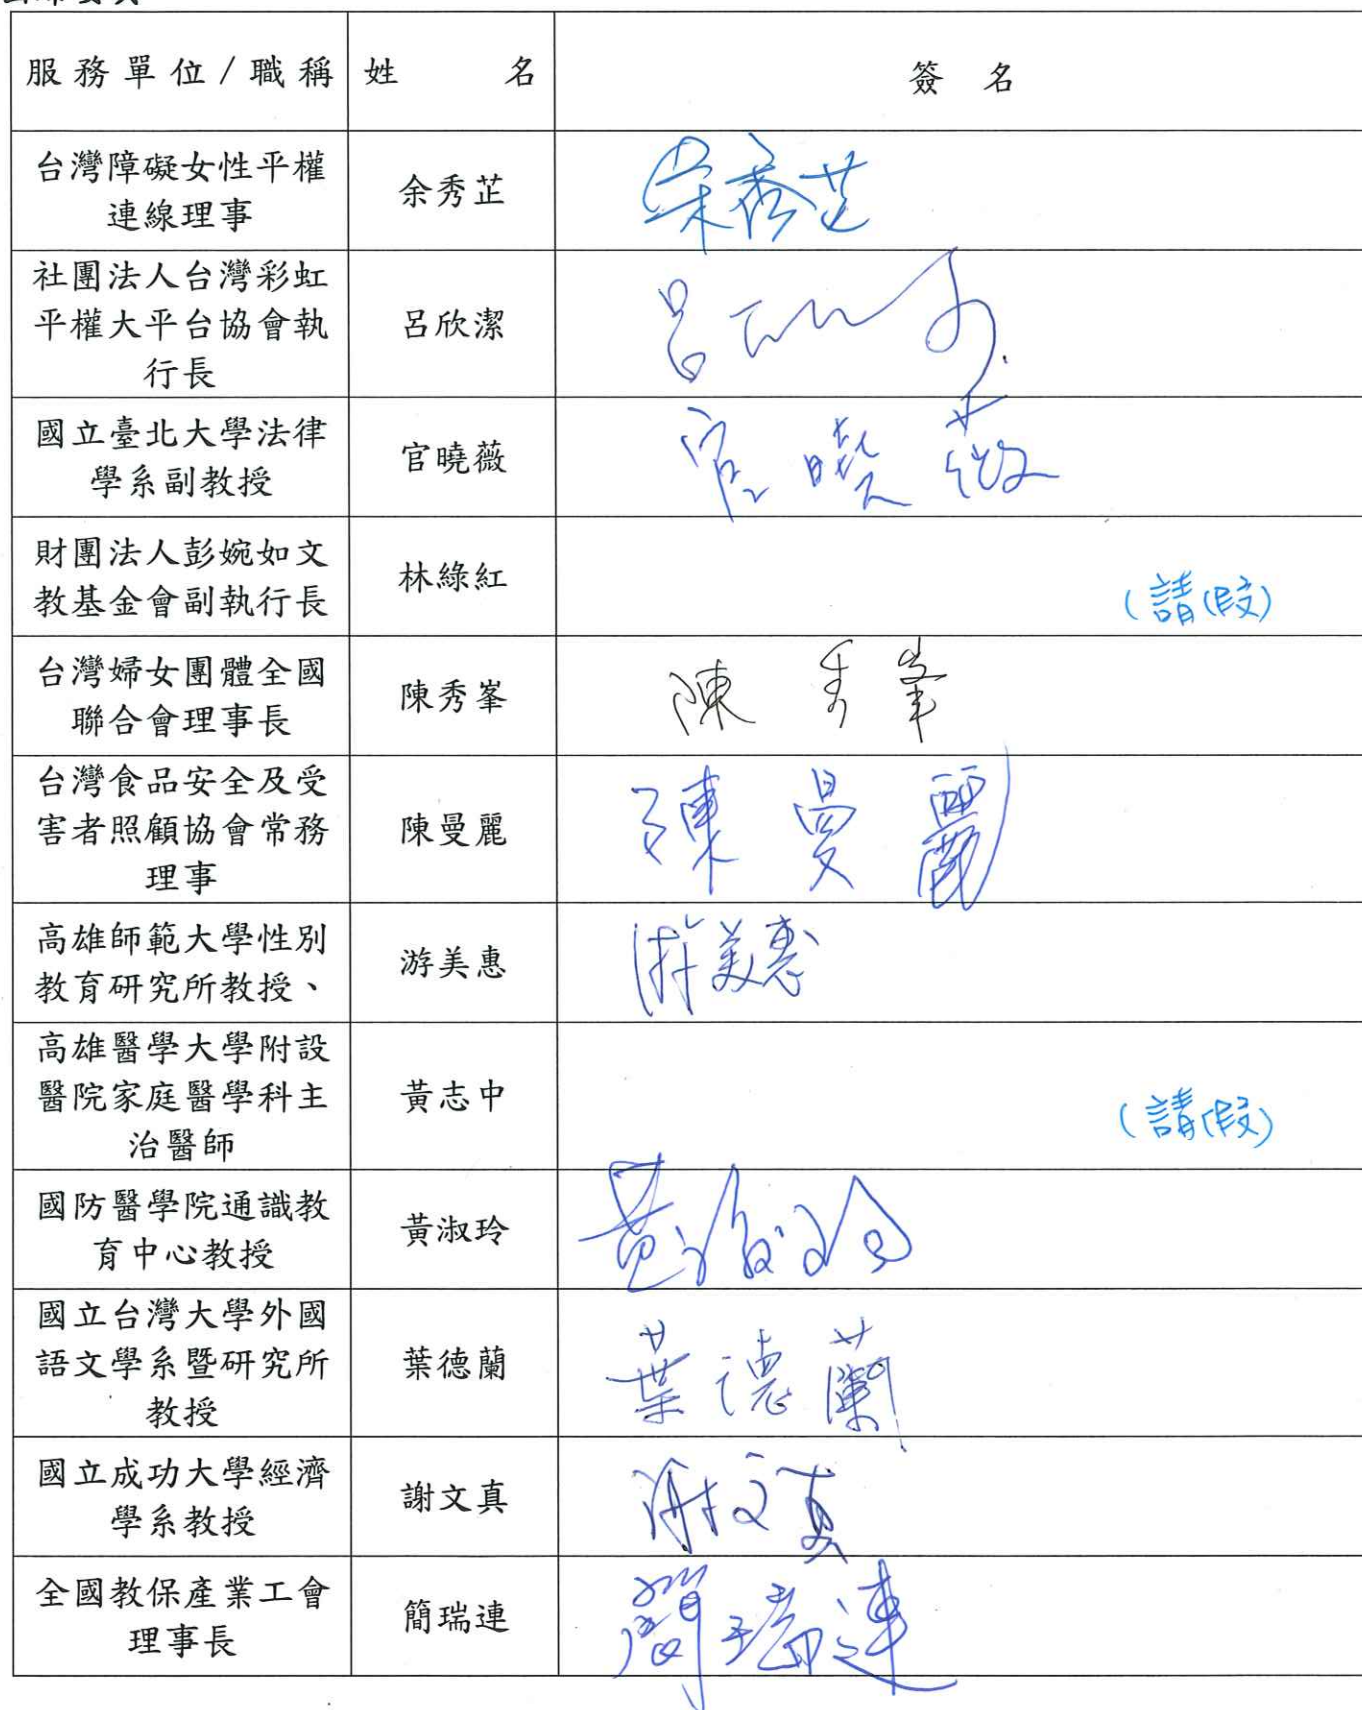 服務單位/職稱 姓名 簽名
台灣障礙女性平權
連線理事
余秀芷
余秀芷
社團法人台灣彩虹
平權大平台協會執
行長
呂欣潔
呂
國立臺北大學法律
學系副教授
官曉薇
官曉薇
財團法人彭婉如文
教基金會副執行長
林綠紅
(請假)
台灣婦女團體全國
聯合會理事長
陳秀峯
陳秀峯
台灣食品安全及受
害者照顧協會常務
理事
陳曼麗
陳曼麗
高雄師範大學性別
教育研究所教授、
游美惠
游美惠
高雄醫學大學附設
醫院家庭醫學科主
治醫師
黃志中
(請假)
國防醫學院通識教
育中心教授
黃淑玲
黃淑玲
國立台灣大學外國
語文學系暨研究所
教授
葉德蘭
葉德蘭
國立成功大學經濟
學系教授
謝文真
謝文真
全國教保產業工會
理事長
簡瑞連
簡瑞連